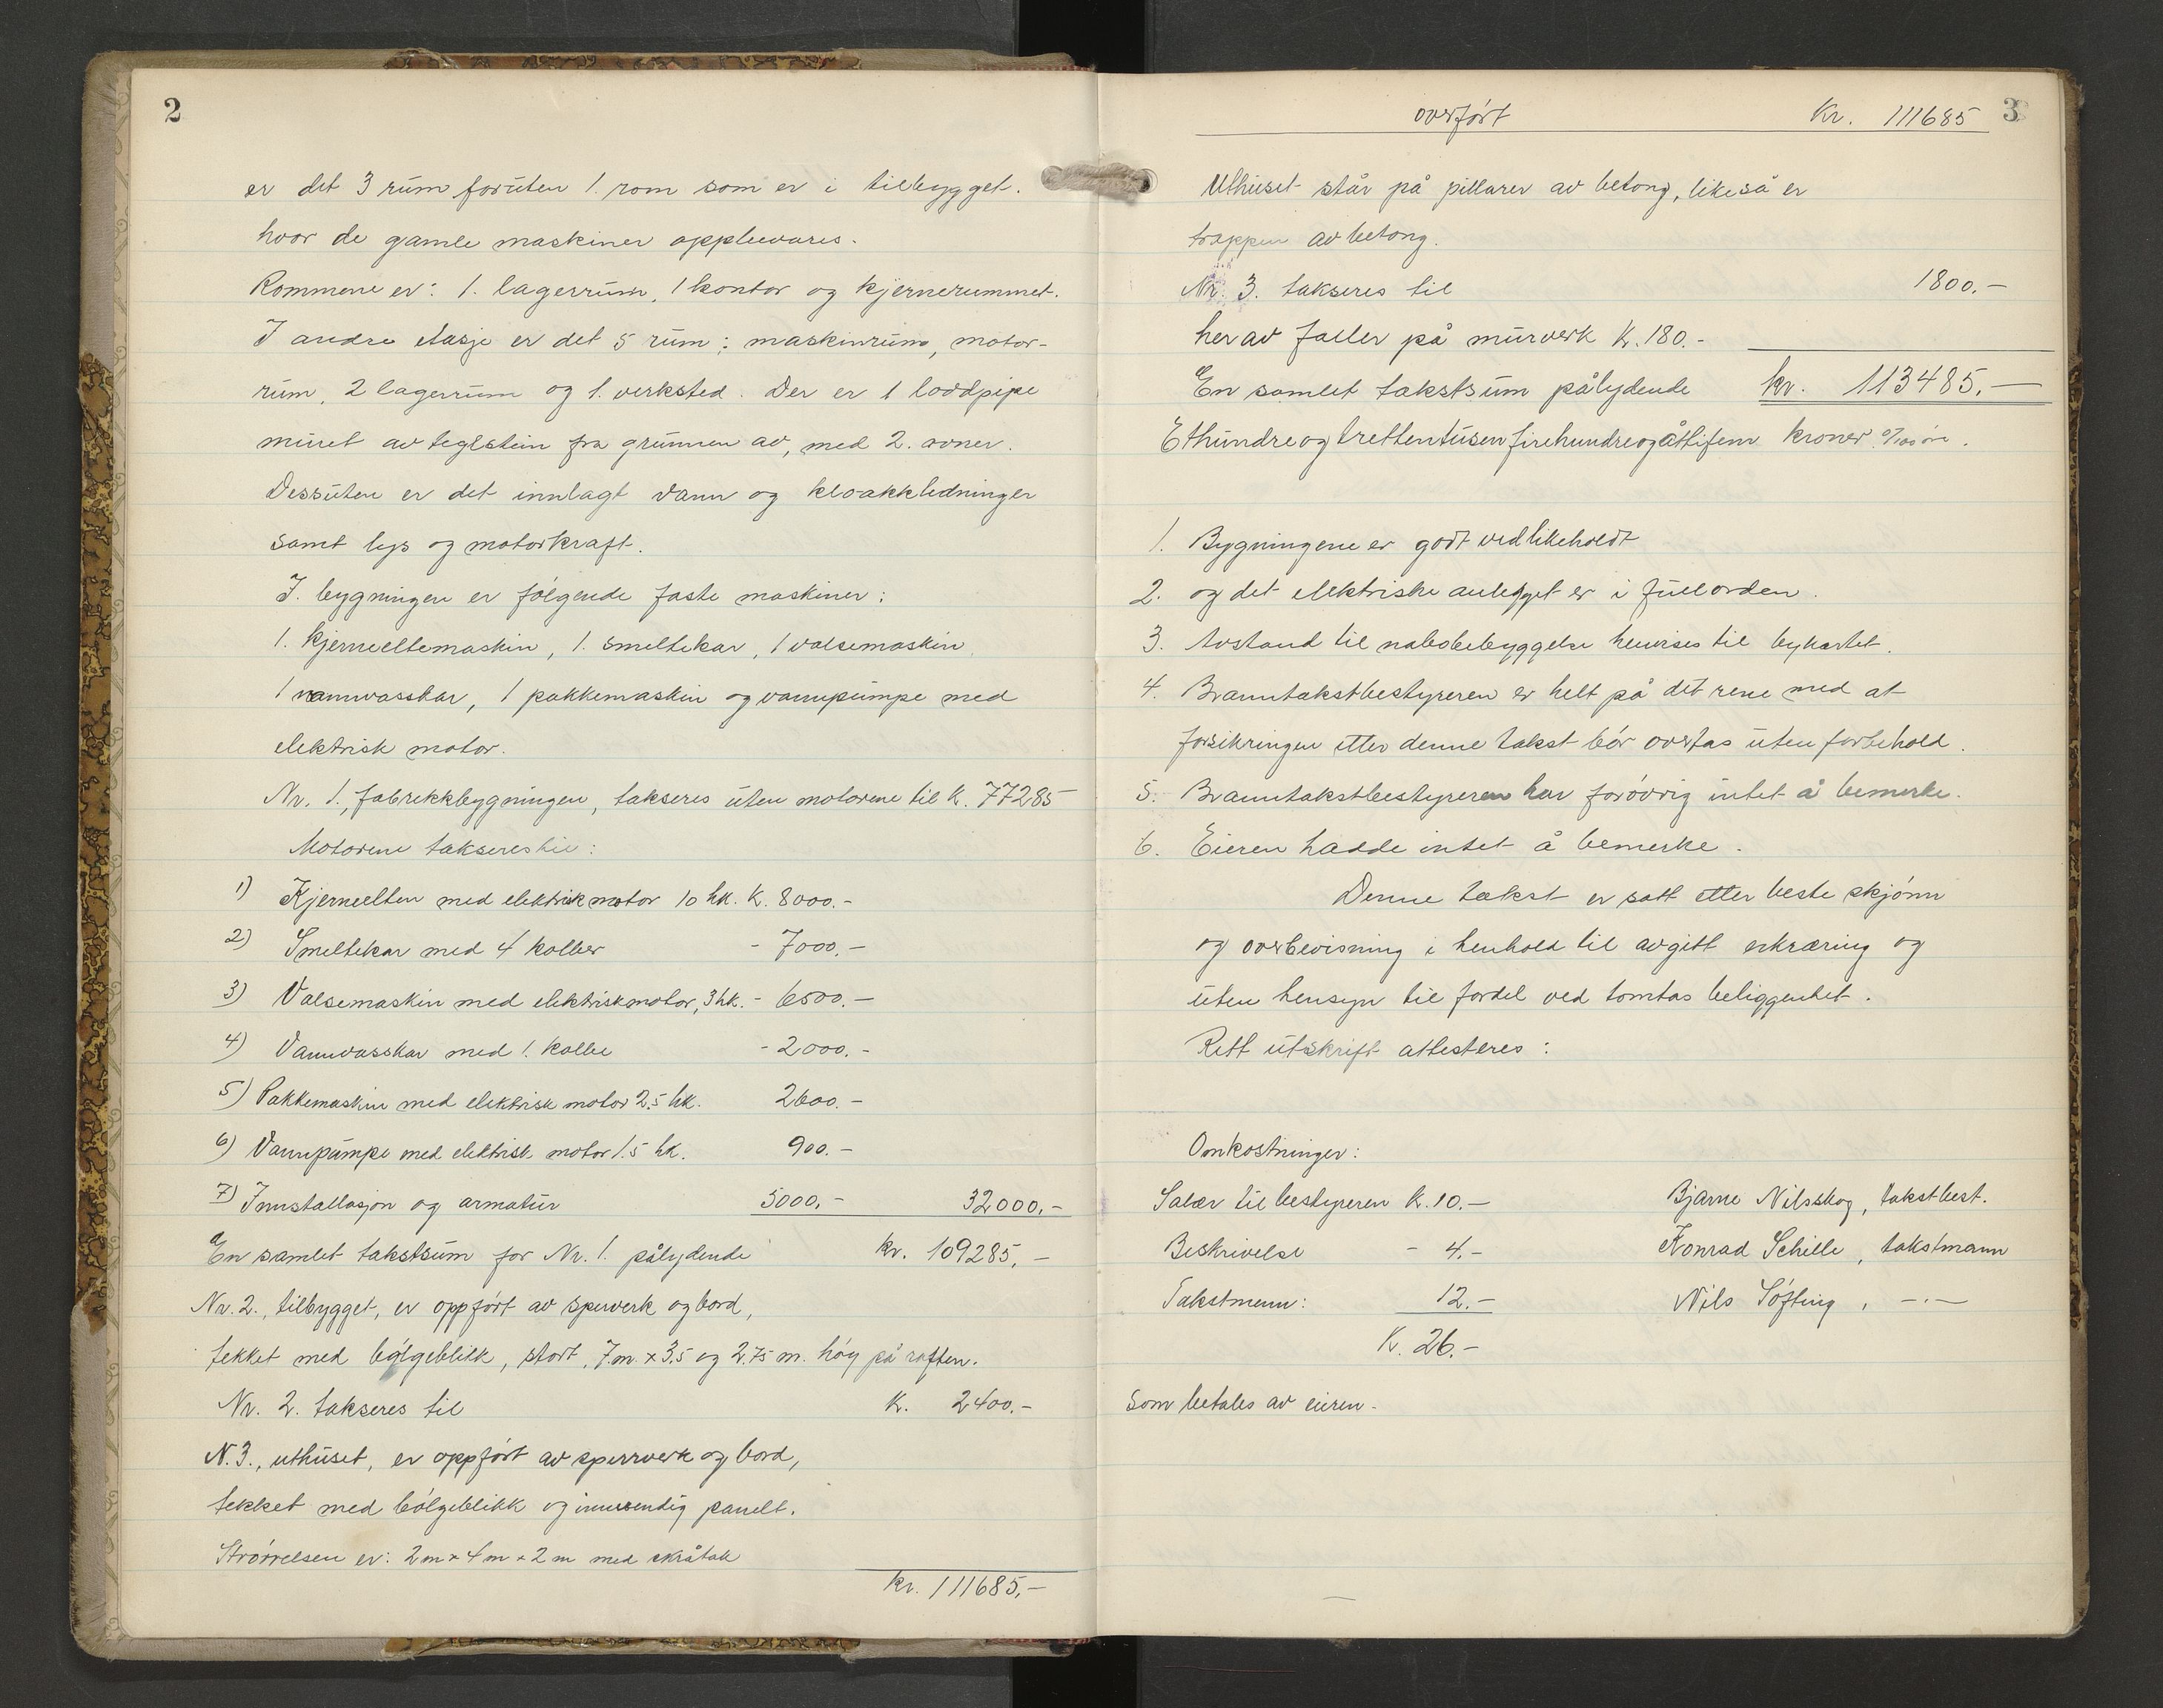 2
er det 3 rüm forüten 1. rom som er i tilbygget.
hvor de gamle maskiner oppbevares.
Rommene er: 1. lagerrüm, 1 kontor og kjernerummet.
I andre etasje er det 5 rüm: maskinrüm, motor-
rüm, 2 lagerrüm og 1. verksted. Der er 1 loddpipe
müret av teglstein fra grünnen av, med 2. ovner.
Dessüten er det innlagt vann og kloakkledninger
samt lys og motorkraft.
I. bygningen er følgende faste maskiner:
1. kjerneeltemaskin, 1. smeltekar, 1 valsemaskin,
1 vannvasskar, 1 pakkemaskin og vannpümpe med
elektrisk motor.
Nr. 1., fabrikkbygningen, takseres üten motorene til K. 77285-
Motorene takseres til:
1) Kjerneelten med elektrisk motor 10 hk. K. 8000.-
2) Smeltekar med 4 kolber - 7000.-
3) Valsemaskin med elektriskmotor, 3 hk. - 6500.-
4) Vannvasskar med 1. kolbe - 2000.-
5) Pakkemaskin med elektrisk motor 2.5 hk. 2600.-
6) Vannpümpe med elektrisk motor 1.5 hk. 900.-
7) Innstallasjon og armatür 5000.- 32000.-
En samlet takstsüm for Nr. 1. pålydende kr. 109285,-
Nr. 2., tilbygget, er oppført av sperverk og bord,
tekket med bølgeblikk, stort, 7.m. x 3.5 og 2.75 m. høy på raften.
Nr. 2. takseres til K. 2400.-
N. 3., uthüset, er oppført av sperrverk og bord,
tekket med bølgeblikk og innvendig panelt.
Størrelsen er: 2 m x 4 m x 2 m med skråtak
kr. 111685,-
overført Kr. 111685 3
Uthüset står på pillarer av betong, likeså er
trappen av betong.
Nr. 3. takseres til 1800.-
herav faller på mürverk K. 180.-
En samlet takstsüm pålydende kr. 113485,-
Ethündreogtrettentüsenfirehundreogåttifem kroner 0/100 øre.
1. Bygningene er godt vedlikeholdt
2. og det elektriske anlegget er i füll orden.
3. Avstand til nabobebyggelse henvises til bykartet.
4. Branntakstbestyreren er helt på det rene med at
forsikringen etter denne takst bør overtas üten forbehold.
5. Branntakstbestyreren har forøvrig intet å bemerke.
6. Eieren hadde intet å bemerke.
Denne takst er satt etter beste skjønn
og overbevisning i henhold til avgitt erkræring og
üten hensyn til fordel ved tomtas beliggenhet.
Rett ütskrift attesteres:
Omkostninger:
Salær til bestyreren K. 10.- Bjarne Nilsskog, takstbest.
Beskrivelse - 4.- Konrad Schille, takstmann
Takstmenn: 12.- Nils Søfting, -.-
K. 26.-
som betales av eieren.